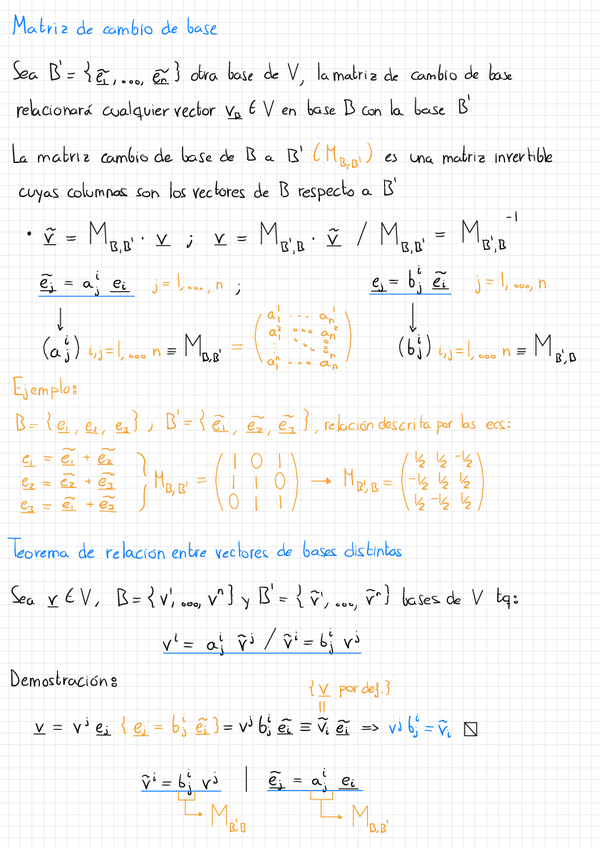 Matriz de cambio de base
Sea B' = {ẽ₁, ..., ẽₙ} otra base de V, la matriz de cambio de base
relacionará cualquier vector v_B ∈ V en base B con la base B'
La matriz cambio de base de B a B' (M_B,B') es una matriz invertible
cuyas columnas son los vectores de B respecto a B'
• ṽ = M_B,B' · v ; v = M_B',B · ṽ / M_B,B' = M_B',B⁻¹
ẽⱼ = aⱼⁱ eᵢ j = 1, ..., n ; eⱼ = bⱼⁱ ẽᵢ j = 1, ..., n
↓ ↓
(aⱼⁱ) i,j=1, ... n ≡ M_B,B' = (a₁¹ ... aₙ¹ a₁² ... aₙ² ⋮ ⋱ ⋮ a₁ⁿ ... aₙⁿ) (bⱼⁱ) i,j=1, ... n ≡ M_B',B
Ejemplo:
B = {e₁, e₂, e₃} ; B' = {ẽ₁, ẽ₂, ẽ₃}, relación descrita por las ecs:
e₁ = ẽ₁ + ẽ₂
e₂ = ẽ₂ + ẽ₃ } M_B,B' = (1 0 1 1 1 0 0 1 1) → M_B',B = (½ ½ -½ -½ ½ ½ ½ -½ ½)
e₃ = ẽ₁ + ẽ₃
Teorema de relación entre vectores de bases distintas
Sea v ∈ V, B = {v¹, ..., vⁿ} y B' = {ṽ¹, ..., ṽⁿ} bases de V tq:
vⁱ = aⱼⁱ ṽʲ / ṽⁱ = bⱼⁱ vʲ
Demostración:
{v por def.}
=
v = vʲ eⱼ {eⱼ = bⱼⁱ ẽᵢ} = vʲ bⱼⁱ ẽᵢ ≡ ṽᵢ ẽᵢ => vʲ bⱼⁱ = ṽᵢ
ṽⁱ = bⱼⁱ vʲ | ẽⱼ = aⱼⁱ eᵢ
→ M_B',B → M_B,B'